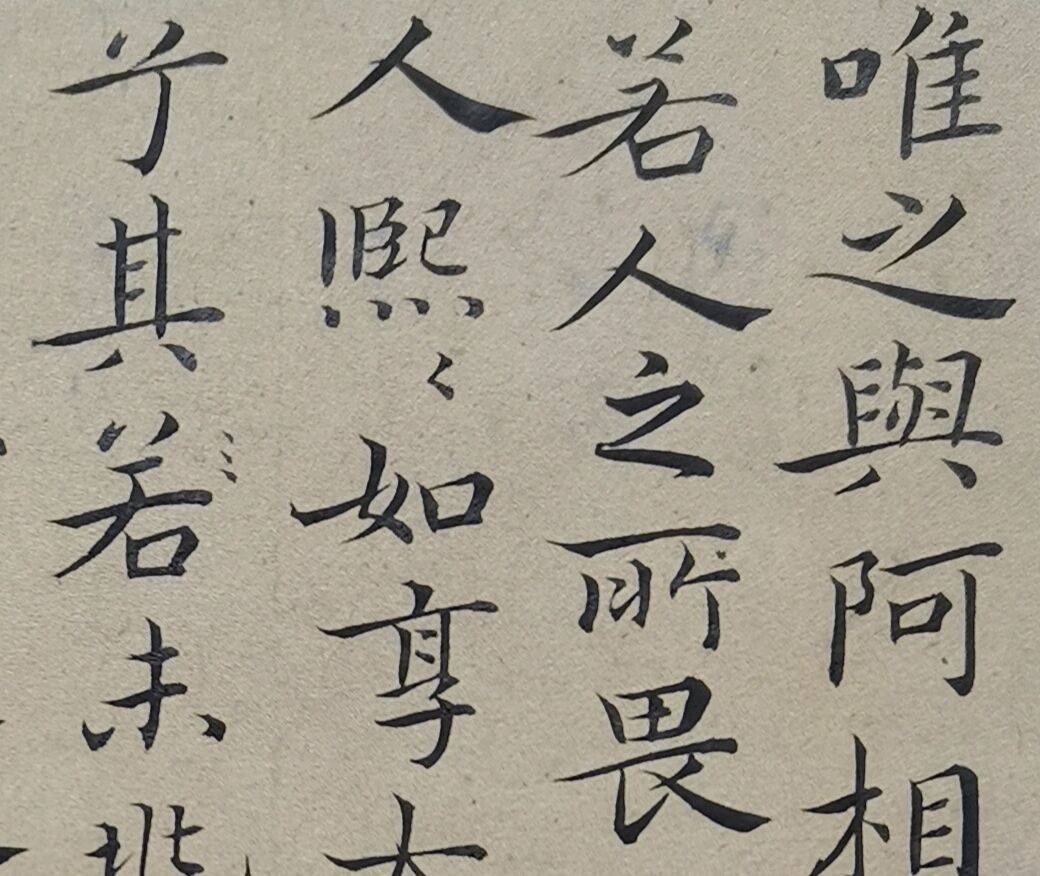 唯之與阿相
若人之所畏
人熙〻如享大
兮其若未